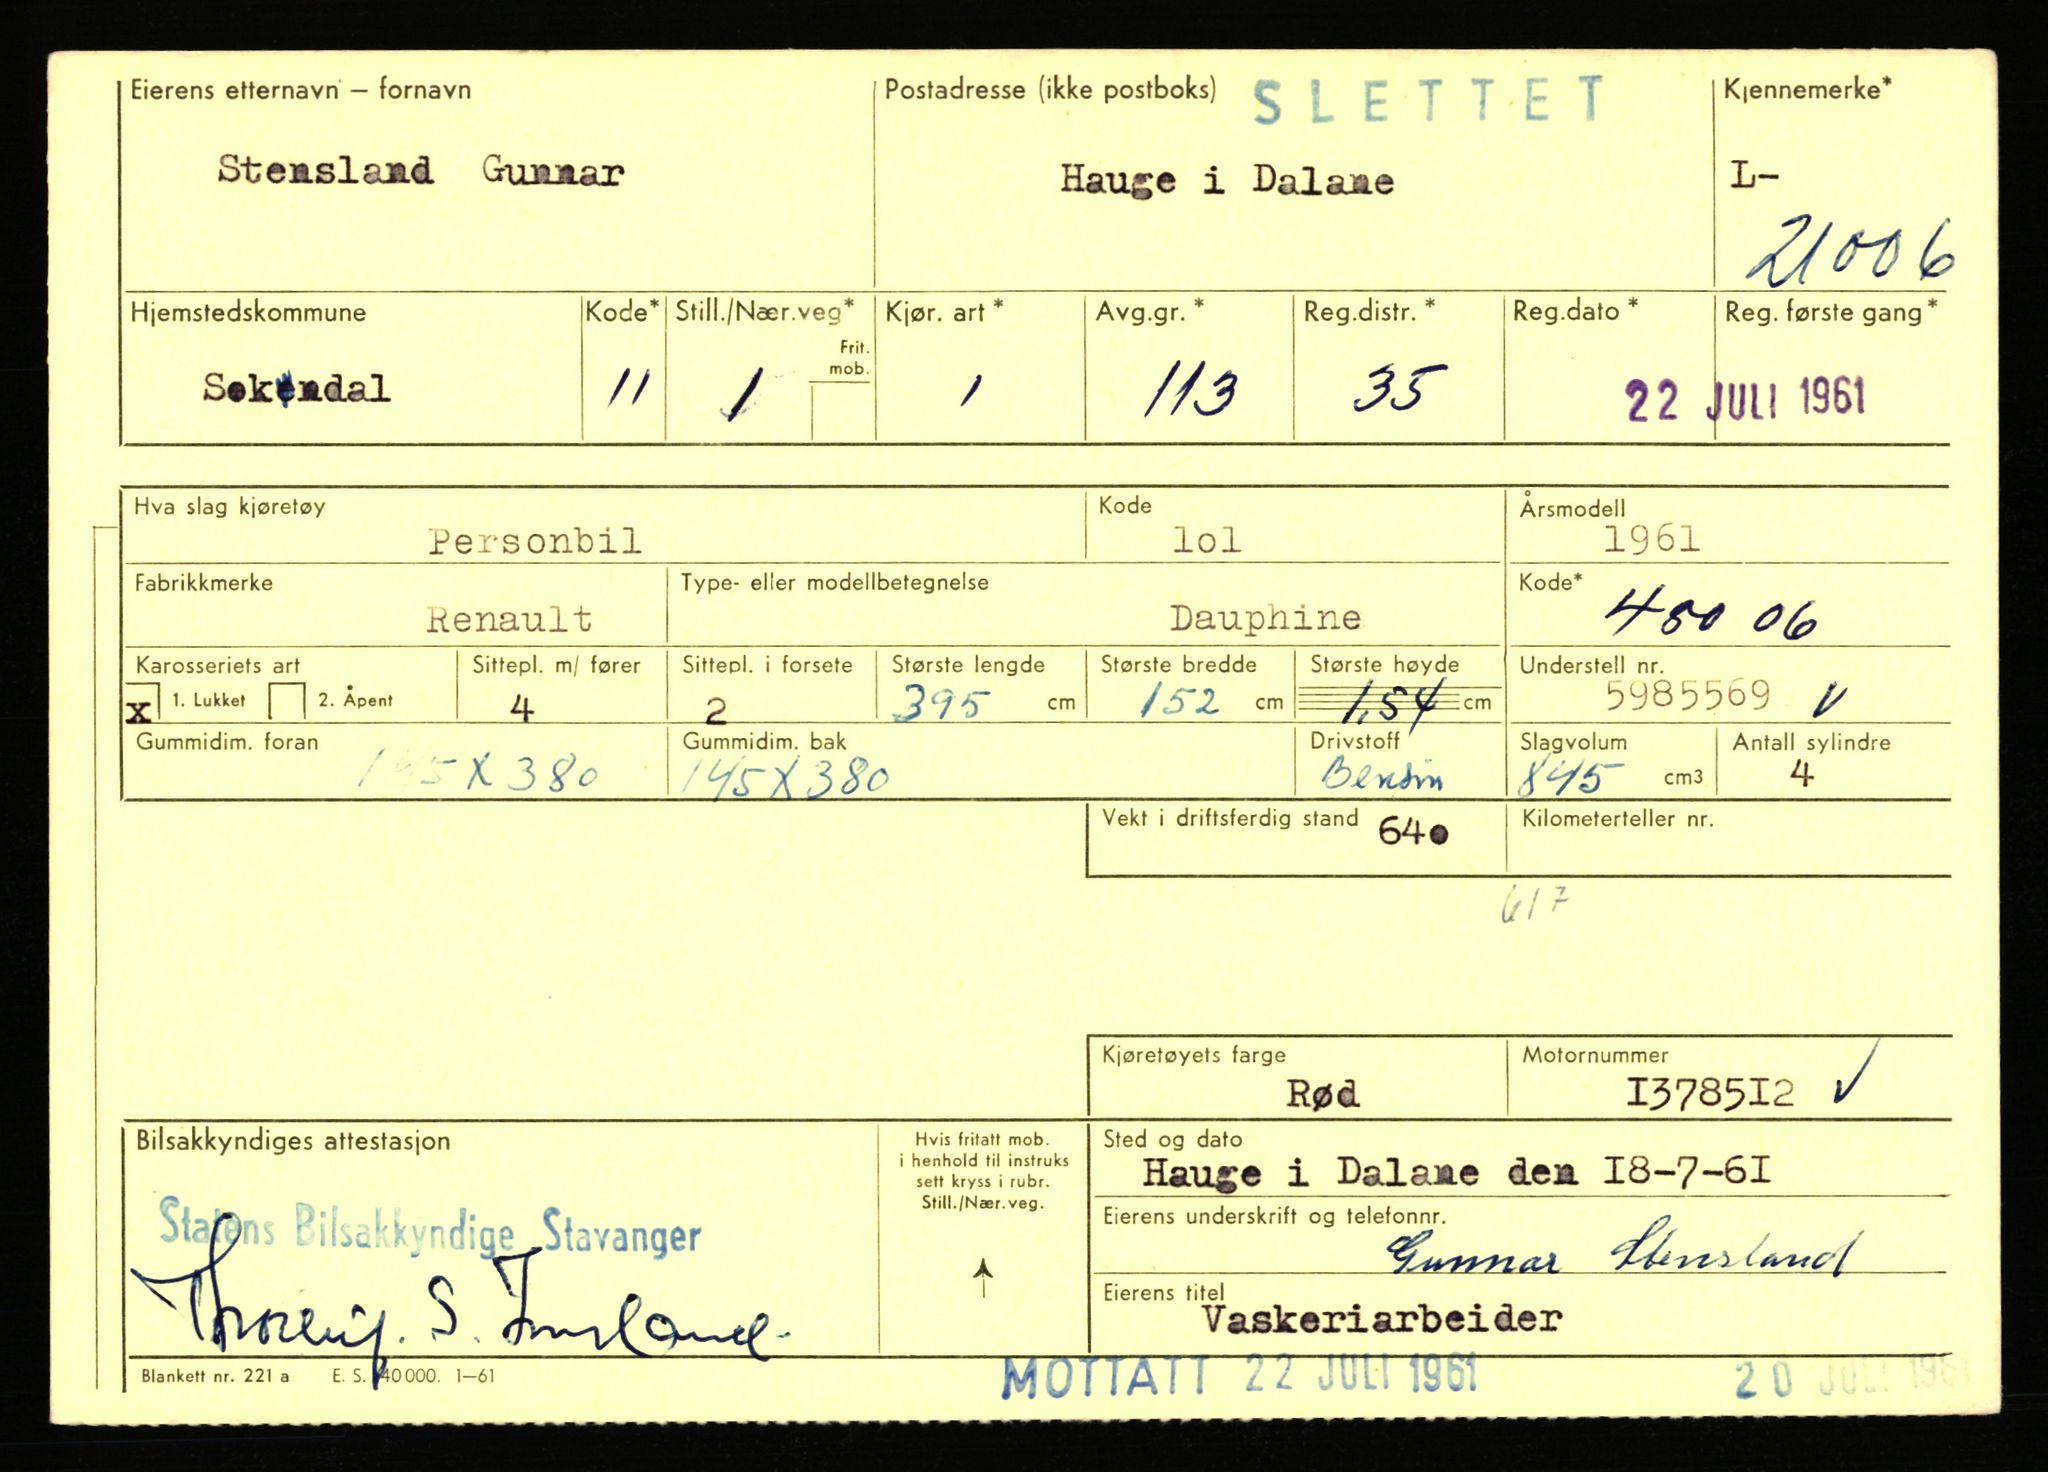 Eierens etternavn – fornavn Postadresse (ikke postboks) SLETTET Kjennemerke*
Stensland Gunnar Hauge i Dalane L-
21006
Hjemstedskommune Kode* Still./Nær.veg* Kjør. art* Avg.gr.* Reg.distr.* Reg.dato* Reg. første gang*
Frit. mob.
Sokndal 11 1 1 113 35 22 JULI 1961
Hva slag kjøretøy Kode Årsmodell
Personbil lol 1961
Fabrikkmerke Type- eller modellbetegnelse Kode*
Renault Dauphine 400 06
Karosseriets art Sittepl. m/ fører Sittepl. i forsete Største lengde Største bredde Største høyde Understell nr.
x 1. Lukket 2. Åpent 4 2 395 cm 152 cm 1,54 cm 5985569
Gummidim. foran Gummidim. bak Drivstoff Slagvolum Antall sylindre
145 X 380 145 X 380 Bensin 845 cm3 4
Vekt i driftsferdig stand 640 Kilometerteller nr.
617
Kjøretøyets farge Motornummer
Rød I3785I2
Bilsakkyndiges attestasjon Hvis fritatt mob. i henhold til instruks sett kryss i rubr. Still./Nær.veg. Sted og dato
Hauge i Dalane den I8-7-6I
Statens Bilsakkyndige Stavanger Eierens underskrift og telefonnr.
Gunnar Stensland
Eierens titel
Vaskeriarbeider
Blankett nr. 221 a E. S. 40 000. 1–61 MOTTATT 22 JULI 1961 20 JULI 1961